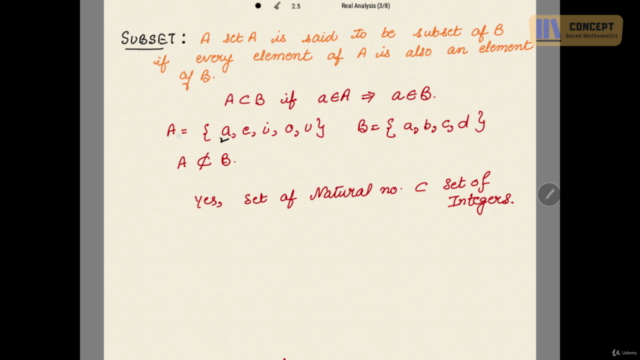 2.5
Real Analysis (3/8)
CONCEPT
Based Mathematics
SUBSET: A set A is said to be subset of B
if every element of A is also an element
of B.
A ⊂ B if a∈A ⇒ a∈B.
A = { a, e, i, o, u } B = { a, b, c, d }
A ⊄ B.
Yes, set of Natural no. ⊂ set of
Integers.
Udemy